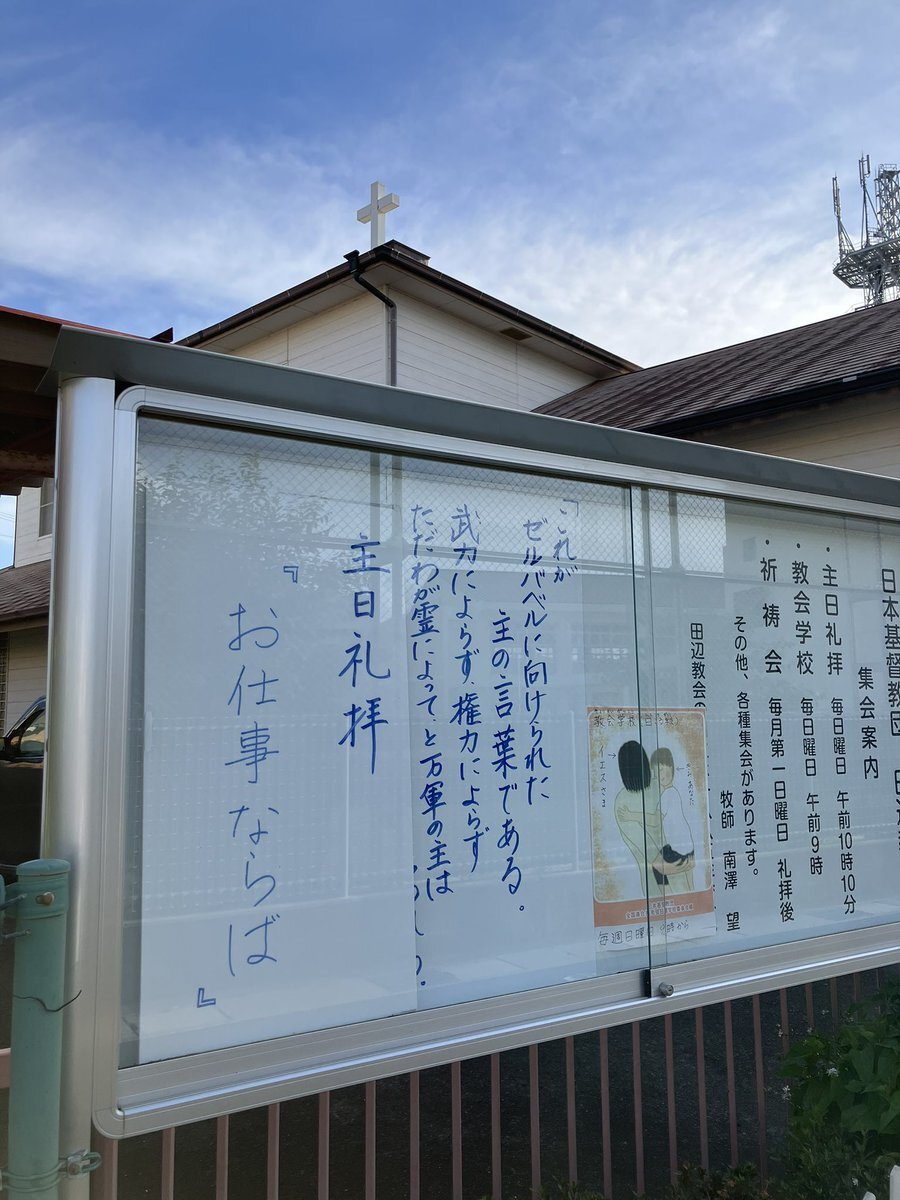 日本基督教団
集会案内
・主日礼拝 毎日曜日 午前10時10分
・教会学校 毎日曜日 午前9時
・祈祷会 毎月第一日曜日 礼拝後
その他、各種集会があります。
牧師 南澤 望
田辺教会の
イエスさま
あなた
毎週日曜日 9時から
「これが
ゼルバベルに向けられた
主の言葉である。
武力によらず、権力によらず
ただわが霊によって、と万軍の主は
主日礼拝
『お仕事ならば』